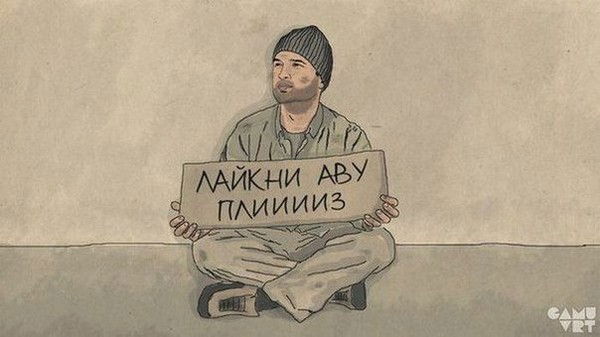 ЛАЙКНИ АВУ
ПЛИИИИИЗ
GAMU
VRT